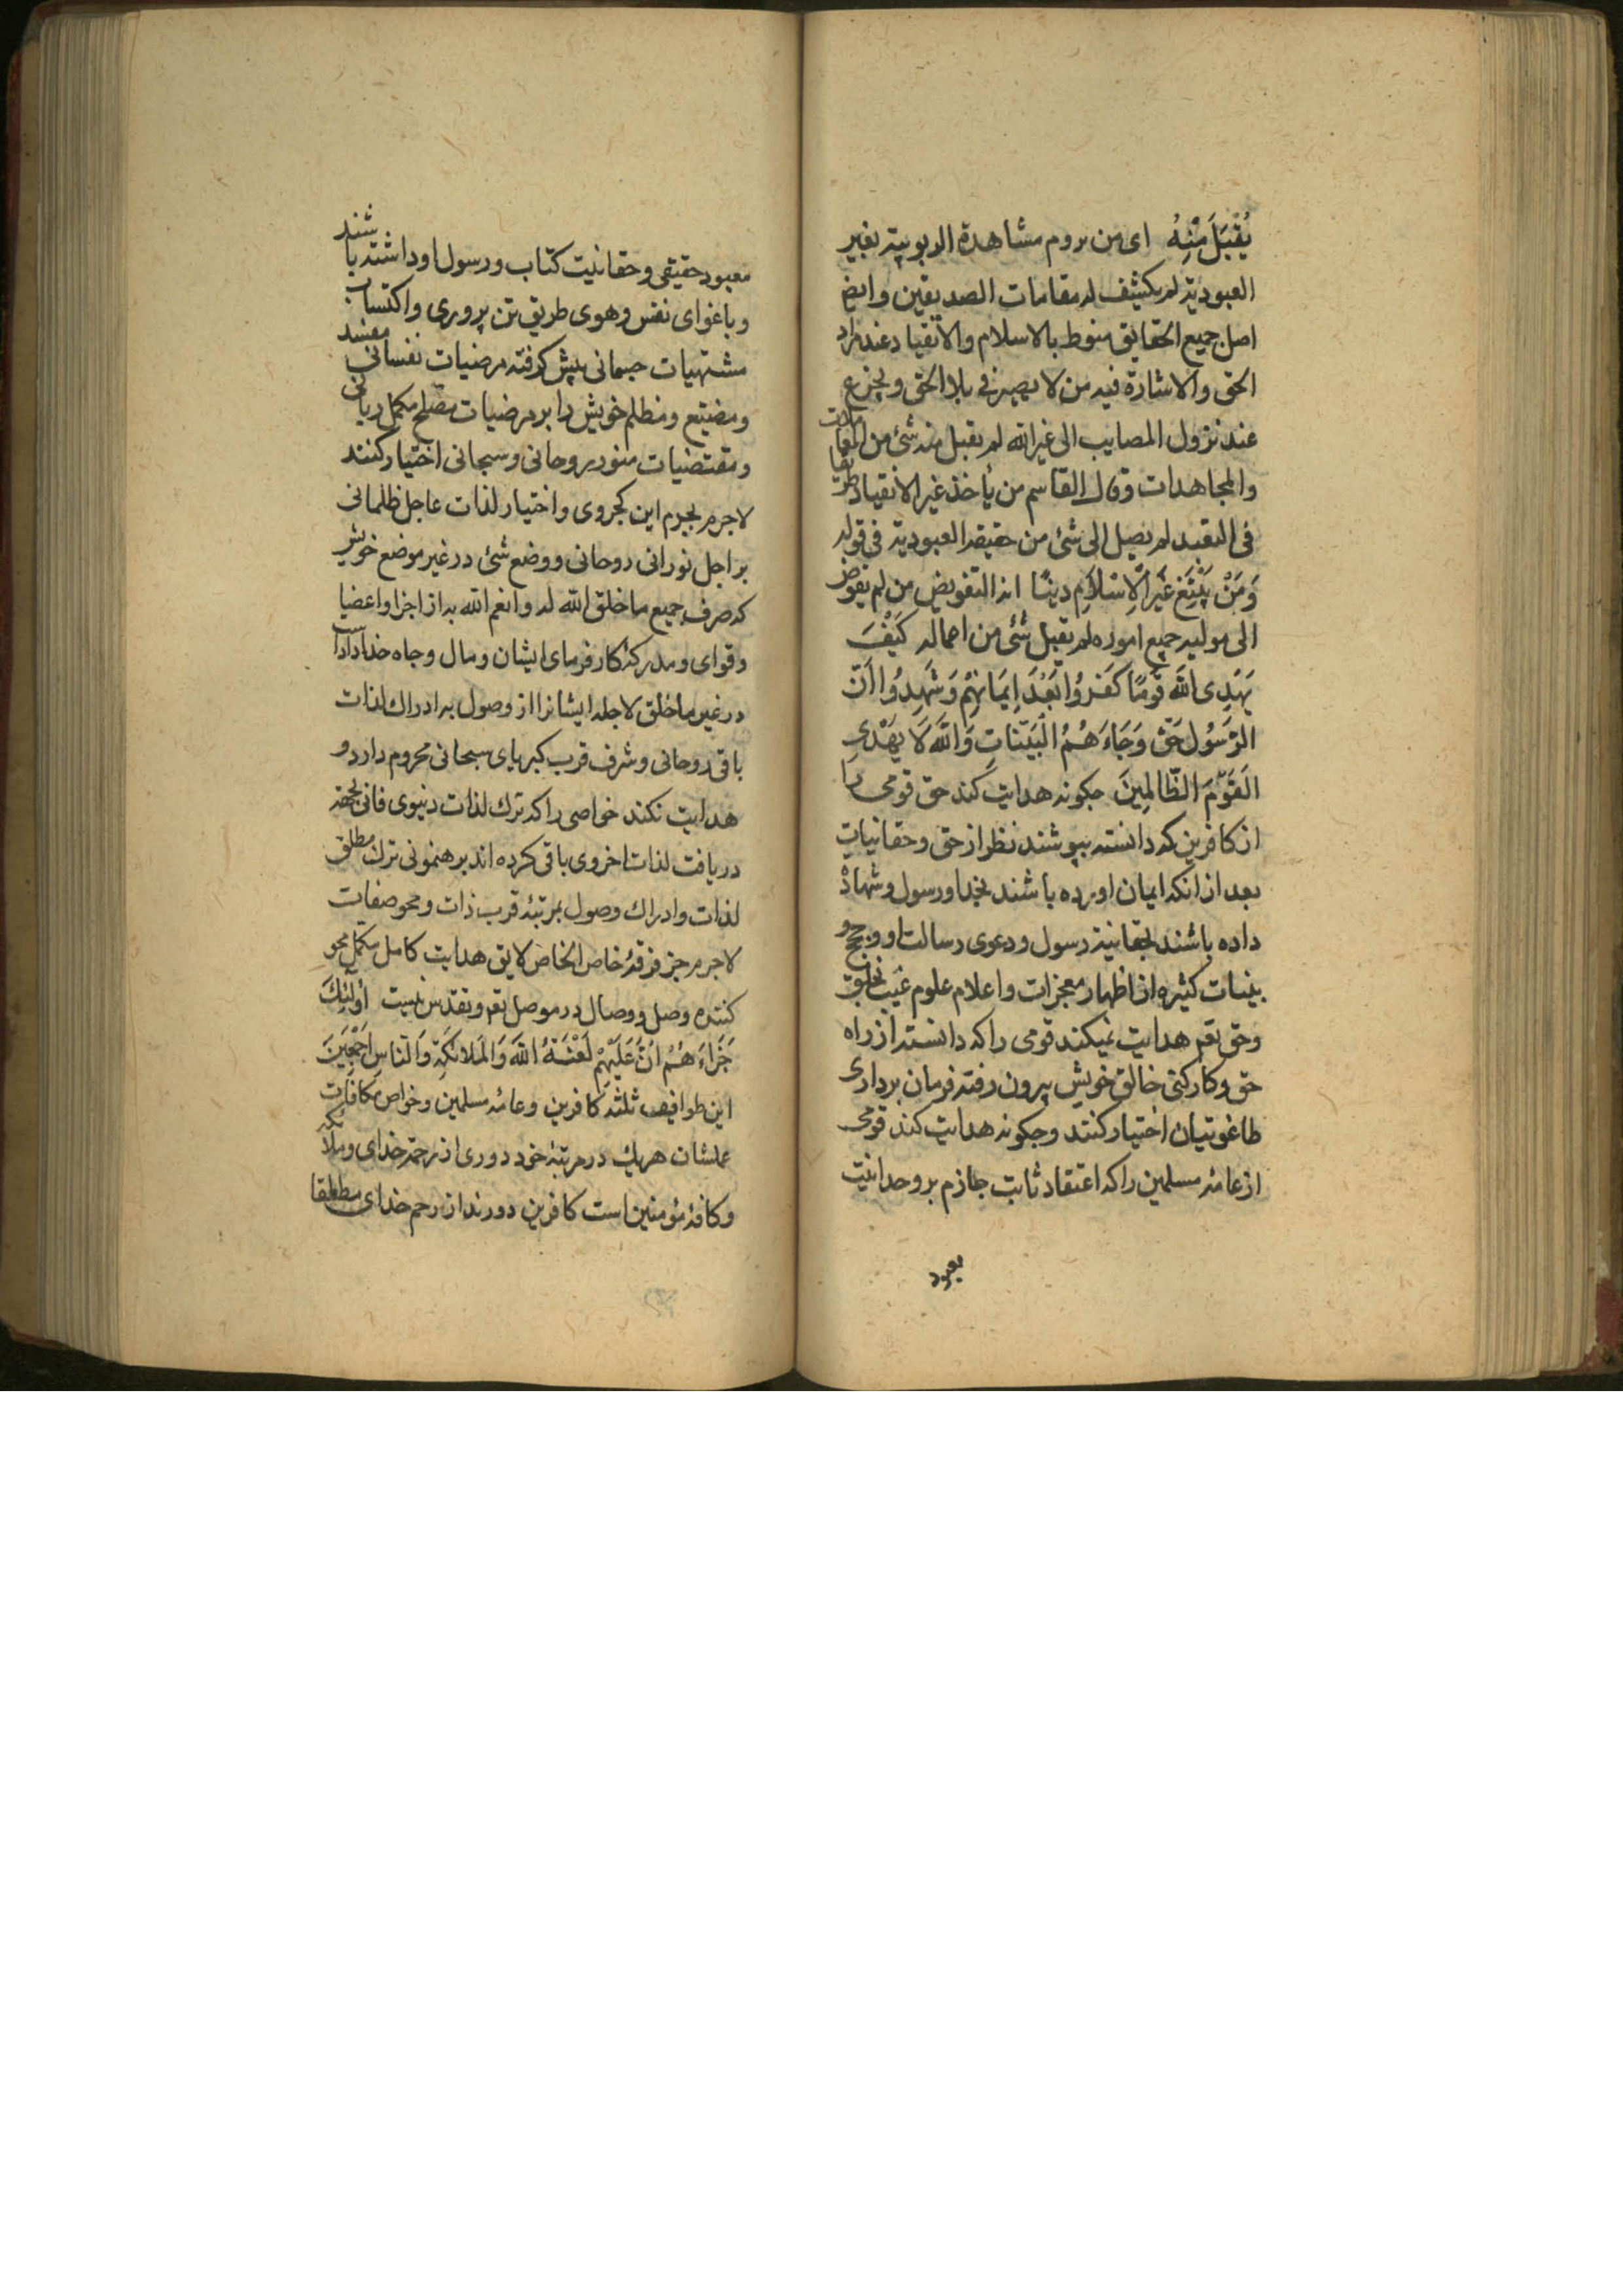 یُقْبَلَ مِنْهُ ای من یروم مشاهدة الربوبیة بغیر
العبودیة لم یکشف له مقامات الصدیقین وایضا
اصل جمیع الحقایق منوط بالاسلام والانقیاد عند مراد
الحق والاشارة فیه من لا یصبر فی بلاء الحق ویجزع
عند نزول المصایب الی غیر الله لم یقبل منه شئ من المقامات
والمجاهدات وقال القاسم من یأخذ غیر الانقیاد طریقا
فی التعبد لم یصل الی شئ من حقیقه العبودیة فی قوله
وَمَنْ یَبْتَغِ غَیْرَ الْاِسْلَامِ دِینًا انه التفویض من لم یفوض
الی مولیه جمیع اموره لم یقبل شئ من اعماله کَیْفَ
یَهْدِی اللّٰهُ قَوْمًا کَفَرُوا بَعْدَ اِیمَانِهِمْ وَشَهِدُوا اَنَّ
الرَّسُولَ حَقٌّ وَجَاءَهُمُ الْبَیِّنَاتِ وَاللّٰهُ لَا یَهْدِی
الْقَوْمَ الظَّالِمِینَ چکونه هدایت کند حق قومی را
از کافرین که دانسته بپوشند نظر از حق وحقانیات
بعد از آنکه ایمان اورده باشند بخدا ورسول وشهادة
داده باشند بحقانیة رسول ودعوی رسالت او وحجج و
بینات کثیره از اظهار معجزات واعلام علوم غیب بخلق
وحق تعم هدایت نمیکند قومی را که دانسته از راه
حق وکارکنی خالق خویش بیرون رفته فرمان برداری
طاغوتیان اختیار کنند وچکونه هدایت کند قومی
از عامهٔ مسلمین را که اعتقاد ثابت جازم بر وحدانیت
معبود
معبود حقیقی وحقانیت کتاب ورسول او داشته باشند
وباغوای نفس وهوی طریق تن پروری واکتساب
مشتهیات جسمانی پیش گرفته مرضیات نفسانی مفسد
ومضیع ومظلم خویش را بر مرضیات مصلح مکمل ربانی
ومقتضیات منور روحانی وسبحانی اختیار کنند
لاجرم بجرم این کجروی واختیار لذات عاجل ظلمانی
بر اجل نورانی روحانی ووضع شئ در غیر موضع خویش
که صرف جمیع ما خلق الله له وانعم الله به از اجزا واعضا
وقوای ومدرکهٔ کارفرمای ایشان ومال وجاه خداداد است
در غیر ما خلق لاجله ایشانرا از وصول بر ادراك لذات
باقی روحانی وشرف قرب کبریای سبحانی محروم دارد و
هدایت نکند خواصی را که ترك لذات دنیوی فانی بجهة
دریافت لذات اخروی باقی کرده اند برهنمونی ترك مطلق
لذات وادراك وصول بمرتبهٔ قرب ذات ومحو صفات
لاجرم جز فرقهٔ خاص الخاص لایق هدایت کامل مکمل محو
کننده وصل ووصال در موصل تعم وتقدس نیست اُولٰئِكَ
جَزَاءُهُمْ اَنَّ عَلَیْهِمْ لَعْنَةُ اللّٰهِ وَالْمَلَائِکَةِ وَالنَّاسِ اَجْمَعِینَ
این طوایف ثلثه کافرین وعامهٔ مسلمین وخواص مکافات
عملشان هریك در مرتبهٔ خود دوری از رحمة خدای وملائکه
وکافهٔ مؤمنین است کافرین دورند از رحم خدای مطلقا